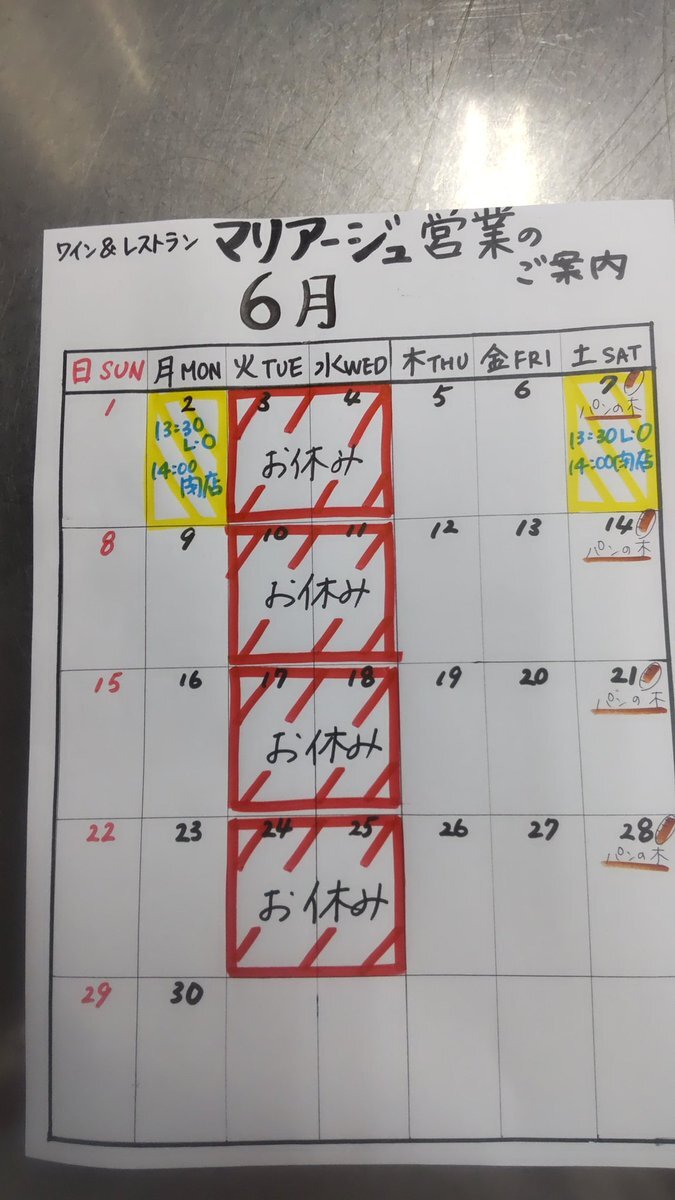 ワイン&レストラン マリアージュ営業の
ご案内
6月
日SUN 月MON 火TUE 水WED 木THU 金FRI 土SAT
1 2 3 4 5 6 7
パンの木
13:30 L.O
14:00 閉店
お休み
13:30 L.O
14:00 閉店
8 9 10 11 12 13 14
パンの木
お休み
15 16 17 18 19 20 21
パンの木
お休み
22 23 24 25 26 27 28
パンの木
お休み
29 30